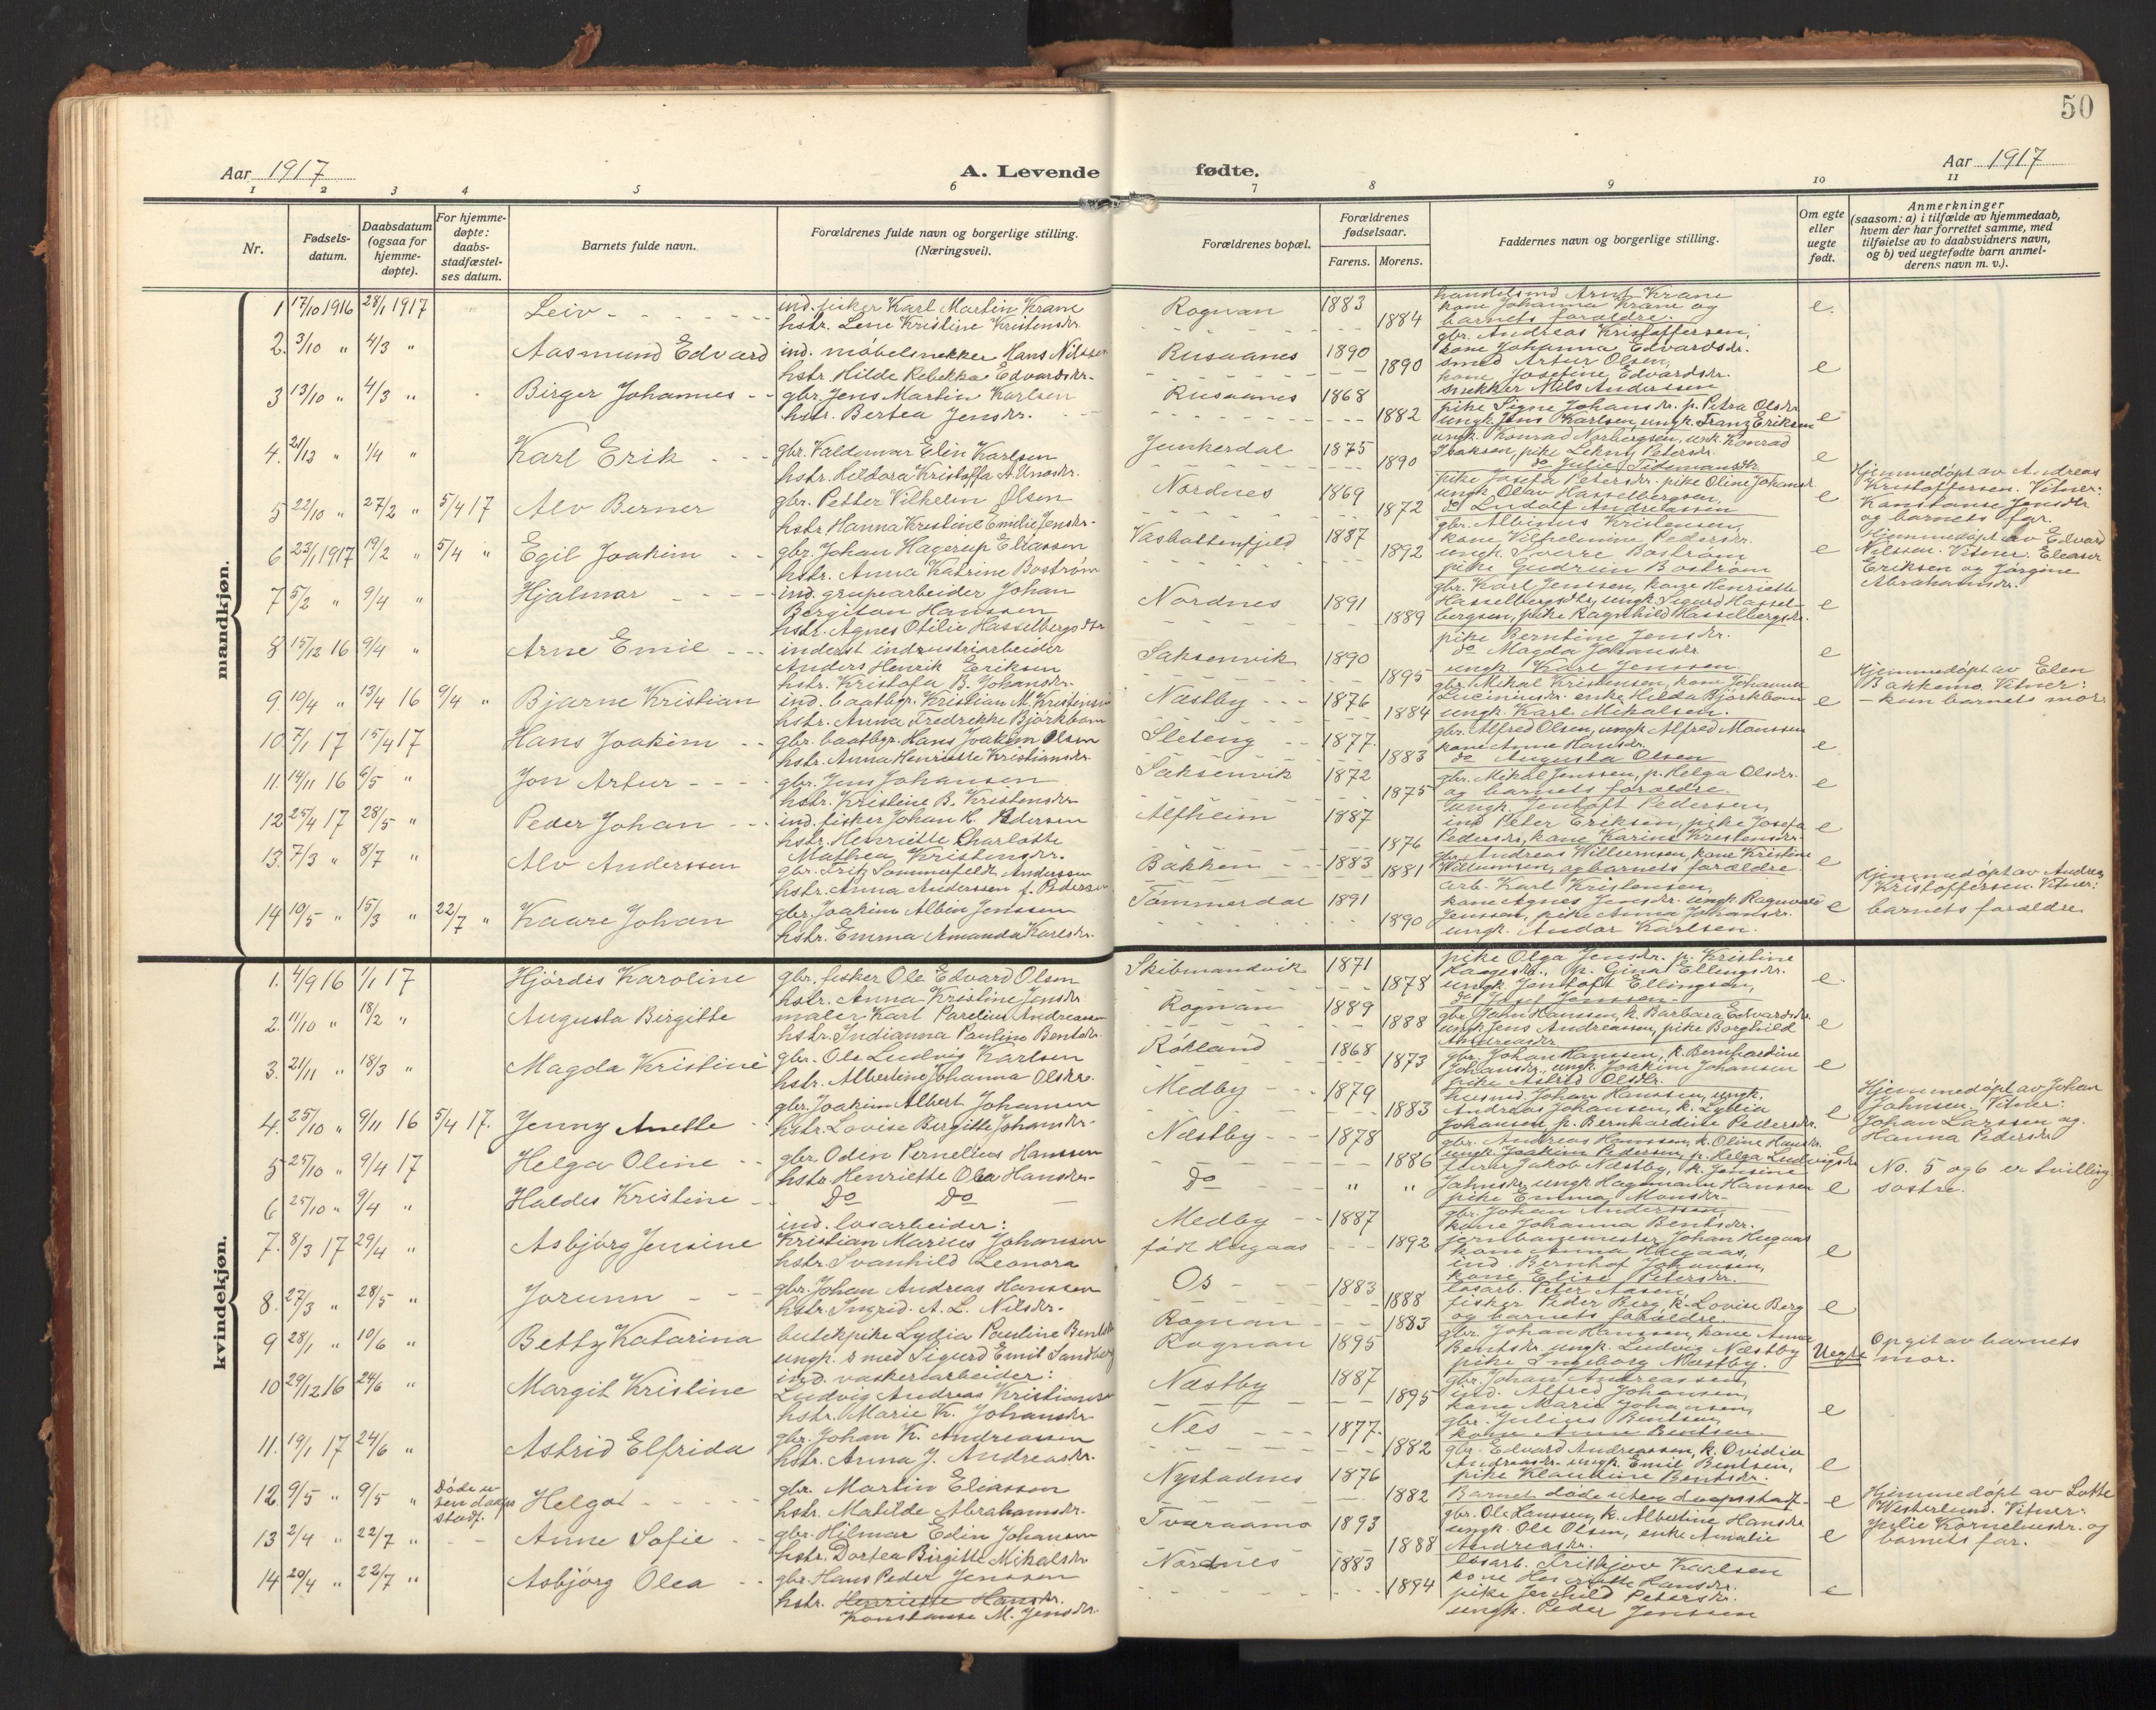 50
Aar 1917
A. Levende fødte.
Aar 1917
1 2 3 4 5 6 7 8 9 10 11
Nr.
Fødsels-
datum.
Daabsdatum
(ogsaa for
hjemme-
døpte).
For hjemme-
døpte:
daabs-
stadfæstel-
ses datum.
Barnets fulde navn.
Forældrenes fulde navn og borgerlige stilling.
(Næringsvei).
Forældrenes bopæl.
Forældrenes
fødselsaar.
Farens. Morens.
Faddernes navn og borgerlige stilling.
Om egte
eller
uegte
født.
Anmerkninger
(saasom: a) i tilfælde av hjemmedaab,
hvem der har forrettet samme, med
tilføielse av to daabsvidners navn,
og b) ved uegtefødte barn anmel-
derens navn m. v.).
mandkjøn.
1 17/10 1916 28/1 1917 Leiv
ind. fisker Karl Martin Krane
hstr. Lene Kristine Kristensdr.
Rognan 1883 1884
handelsmd Arnt Krane
kone Johanna Krane og
barnets forældre.
e.
2. 3/10 " 4/3 " Aasmund Edvard
ind. møbelsnekker Hans Nilssen
hstr. Hilde Rebekka Edvardsdr.
Rusaanes 1890 1890
gbr. Andreas Kristoffersen,
kone Johanna Edvardsdr.
smed Artur Olsen,
kone Josefine Edvardsdr.
e
3 13/10 " 4/3 " Birger Johannes
gbr. Jens Martin Karlsen
hstr. Bertea Jensdr.
Rusaanes 1868 1882
snekker Nils Anderssen
pike Signe Johansdr. p. Petra Olsdr.
ungk. Jens Karlsen, ungk. Franz Eriksen
e
4. 21/12 " 1/4 " Karl Erik
gbr. Valdemar Elin Karlsen
hstr. Heldora Kristoffa A. Unosdr.
Junkerdal 1875 1890
ungk. Konrad Norbergsen, unk. Konrad
Isaksen, pike Petersdr.
do Julie Tidemansdtr.
e
5 22/10 " 27/2 " 5/4 17 Alv Berner
gbr. Petter Vilhelm Olsen
hstr. Hanna Kristine Emilie Jensdr.
Nordnes 1869 1872
pike Josefa Petersdr. pike Oline Johansdr
ungk. Olav Hasselbergsen.
do Ludolf Andreassen
e
Hjemmedøpt av Andreas
Kristoffersen. Vitner:
Konstanse Jensdtr
og barnets far.
6 23/1 1917 19/2 " 5/4 " Egil Joakim
gbr. Johan Hagerup Eliassen
hstr. Anna Katrine Boström
Vasbottenfjeld 1887 1892
gbr. Albinus Kristensen,
kone Vilhelmine Pedersdr.
ungk. Sverre Boström
pike Gudrun Boström
e
Hjemmedøpt av Edvard
Nilssen. Vitner: Eleaser
Eriksen og Jørgine
Abrahamsdr.
7 5/2 " 9/4 " Hjalmar
ind. grupearbeider Johan
Bergiton Hanssen
hstr. Agnes Otilie Hasselbergsdtr
Nordnes 1891 1889
gbr. Karl Jenssen, kone Henriette
Hasselbergsdtr, ungk. Sigurd Hassel-
bergsen, pike Ragnhild Hasselbergsdr.
e
8 15/12 16 9/4 " Arne Emil
inderst industriarbeider
Anders Henrik Eriksen
hstr. Kristofa B. Johansdr.
Saksenvik 1890 1895
pike Berntine Jensdr.
do Magda Johansdr
ungk. Karl Jenssen.
e
9. 10/4 " 13/4 16 9/4 " Bjarne Kristian
ind. baatbgr. Kristian M. Kristensen
hstr. Anna Fredrekke Björkbom
Næstby 1876 1884
gbr. Mikal Kristensen, kone Johanna
Luciniusdr. enke Hilda Björkbom
ungk. Karl Mikalsen.
e
Hjemmedøpt av Elen
Bakkemo. Vitner:
- kun barnets mor.
10. 7/1 17 15/4 17 Hans Joakim
gbr. baatbgr. Hans Joakim Olsen
hstr. Anna Henriette Kristiansdr.
Sleteng 1877. 1883
gbr. Alfred Olsen, ungk. Alfred Monssen
kone Anne Hansdr.
do Augusta Olsen
e
11. 14/11 16 6/5 " Jon Artur
gbr. Jens Johansen
hstr. Kristine B. Kristensdr
Saksenvik 1872 1875
gbr. Mikal Jenssen, p. Helga Olsdr.
og barnets forældre.
e
12 25/4 17 28/5 " Peder Johan
ind. fisker Johan H. Pedersen
hstr. Henriette Charlotte
Mathea Kristensdr.
Alfheim 1887 1876
ungk. Jentoft Pedersen,
ind Peter Eriksen, pike Josefa
Pedersdr, kone Karine Kristensdr.
e
13. 7/3 " 8/7 " Alv Anderssen
gbr. Fritz Sommerfeldt Anderssen
hstr. Anna Anderssen f. Pedersen
Bakken 1883 1881
gbr. Andreas Willumsen, kone Kristine
Willumsen, og barnets forældre
e
14 10/5 " 15/3 " 22/7 " Kaare Johan
gbr. Joakim Albin Jenssen
hstr. Emma Amanda Karlsdr.
Tømmerdal 1891 1890
arb. Karl Kristensen,
kone Agnes Jensdr. ungk. Ragnvald
Jenssen, pike Anna Johansdr.
ungk. Andor Karlsen.
e
Hjemmedøpt av Andreas
Kristoffersen. Vitner:
barnets forældre.
kvindekjøn.
1. 4/9 16 1/1 17 Hjördis Karoline
gbr. fisker Ole Edvard Olsen
hstr. Anna Kristine Jensdr
Skibmandvik 1871 1878
pike Olga Jensdr. p. Kristine
Haagesdr., p. Gina Ellingsdr.
ungk. Jentoft Ellingsen,
do Josef Jenssen.
e.
2. 11/10 " 18/2 " Augusta Birgitte
maler Karl Parelius Andreassen
hstr. Indianna Pauline Bentsdr.
Rognan 1889 1888
gbr. John Hanssen, k. Barbara Edvardsdr.
ungk. Jens Andreassen, pike Borghild
Andreasdr
e
3. 21/11 " 18/3 " Magda Kristine
gbr. Ole Ludvig Karlsen
hstr. Albertine Johanna Olsdr.
Rökland 1868 1873
gbr. Johan Hanssen, k. Bernhardine
Johansdr., ungk. Joakim Johansen
pike Astrid Olsdtr.
e
4. 25/10 " 9/11 16 5/4 17. Jenny Anette
gbr. Joakim Albert Johansen
hstr. Lovise Bergitte Johansdr.
Medby 1879 1883
husmd. Johan Hanssen, ungk.
Andreas Johansen, k. Lydia
Johansen, p. Bernhardine Pedersdr.
e
Hjemmedøpt av Johan
Johnsen. Vitner:
Johan Larssen og
Hanna Pedersdr
5 25/10 " 9/4 17 Helga Oline
gbr. Odin Pernelius Hanssen
hstr Henriette Olea Hansdr.
Næstby 1878 1886
gbr. Andreas Hanssen, k. Oline Hansdr.
ungk. Joakim Pedersen, p. Helga Ludvigsdr
e
No. 5 og 6 er tvilling
søstre.
6 25/10 " 9/4 " Haldis Kristine
Do Do
Do " "
furer Jakob Næstby, k. Jensine
Jahnsdr, ungk. Hagemann Hanssen
pike Emma Monsdr.
e
7. 8/3 17 29/4 " Asbjørg Jensine
ind. losarbeider:
Kristian Marius Johansen
hstr. Svanhild Leonora
født Haugaas
Medby 1887 1892
gbr. Johan Anderssen,
kone Johanna Bentsdr.
jernbanemester Johan Haugaas
kone Anna Haugaas,
e
8. 27/3 " 28/5 " Jorunn
gbr. Johan Andreas Hanssen
hstr. Ingrid. A. L. Nilsdr.
Os 1883 1888
ind. Bernhof Johansen,
kone Elise Petersdr.
losarb. Peter Aasen,
fisker Peder Berg, k. Lovise Berg
og barnets forældre.
e
9 28/1 " 10/6 " Betty Katarina
butikpike Lydia Pauline Bentsdr
ungk. smed Sigurd Emil Sandberg
Rognan 1883
Rognan 1895
gbr. Johan Hanssen, kone Anna
Bentsdr. ungk. Ludvig Næstby
pike Ingeborg Næstby.
Uegte
Opgit av barnets
mor.
10 29/12 16 24/6 " Margit Kristine
ind. vaskeriarbeider:
Ludvig Andreas Kristiansen
hstr. Marie K. Johansdr
Næstby 1887 1895
gbr. Johan Andreassen,
ind. Alfred Johansen,
kone Marie Johansen,
e
11. 19/1 17 24/6 " Astrid Elfrida
gbr. Johan K. Andreassen
hstr. Anna J. Andreasdr.
Nes 1877. 1882
gbr. Julius Bentsen,
kone Anne Bentsen.
gbr. Edvard Andreassen, k. Ovidia
Andreasdr. ungk. Emil Bentsen,
pike Klaudine Bentsdr.
e
12. 9/5 " 9/5 " Døde u-
ten daaps
stadf. Helga
gbr. Martin Eliassen
hstr. Matilde Abrahamsdr.
Nystadnes 1876 1882
Barnet døde uten daapsstadf.
e
Hjemmedøpt av Lotte
Westerlund. Vitner:
Julie Korneliusdr. og
barnets far.
13 2/4 " 22/7 " Anne Sofie
gbr. Hilmar Edin Johansen
hstr. Dortea Birgitte Mikalsdr.
Tveraamo 1893 1888
gbr. Ole Hanssen, k. Albertine Hansdr
ungk. Ole Olsen, enke Amalie
Andreasdr.
e
14 20/4 " 22/7 " Asbjörg Olea
gbr. Hans Peder Jenssen
hstr. Henriette Hansdr.
Konstanse M. Jensdr.
Nordnes 1883 1894
losarb. Fritjov Karlsen
kone Henriette Hansdr.
pike Jenhild Petersdr.
ungk. Peder Jenssen
e